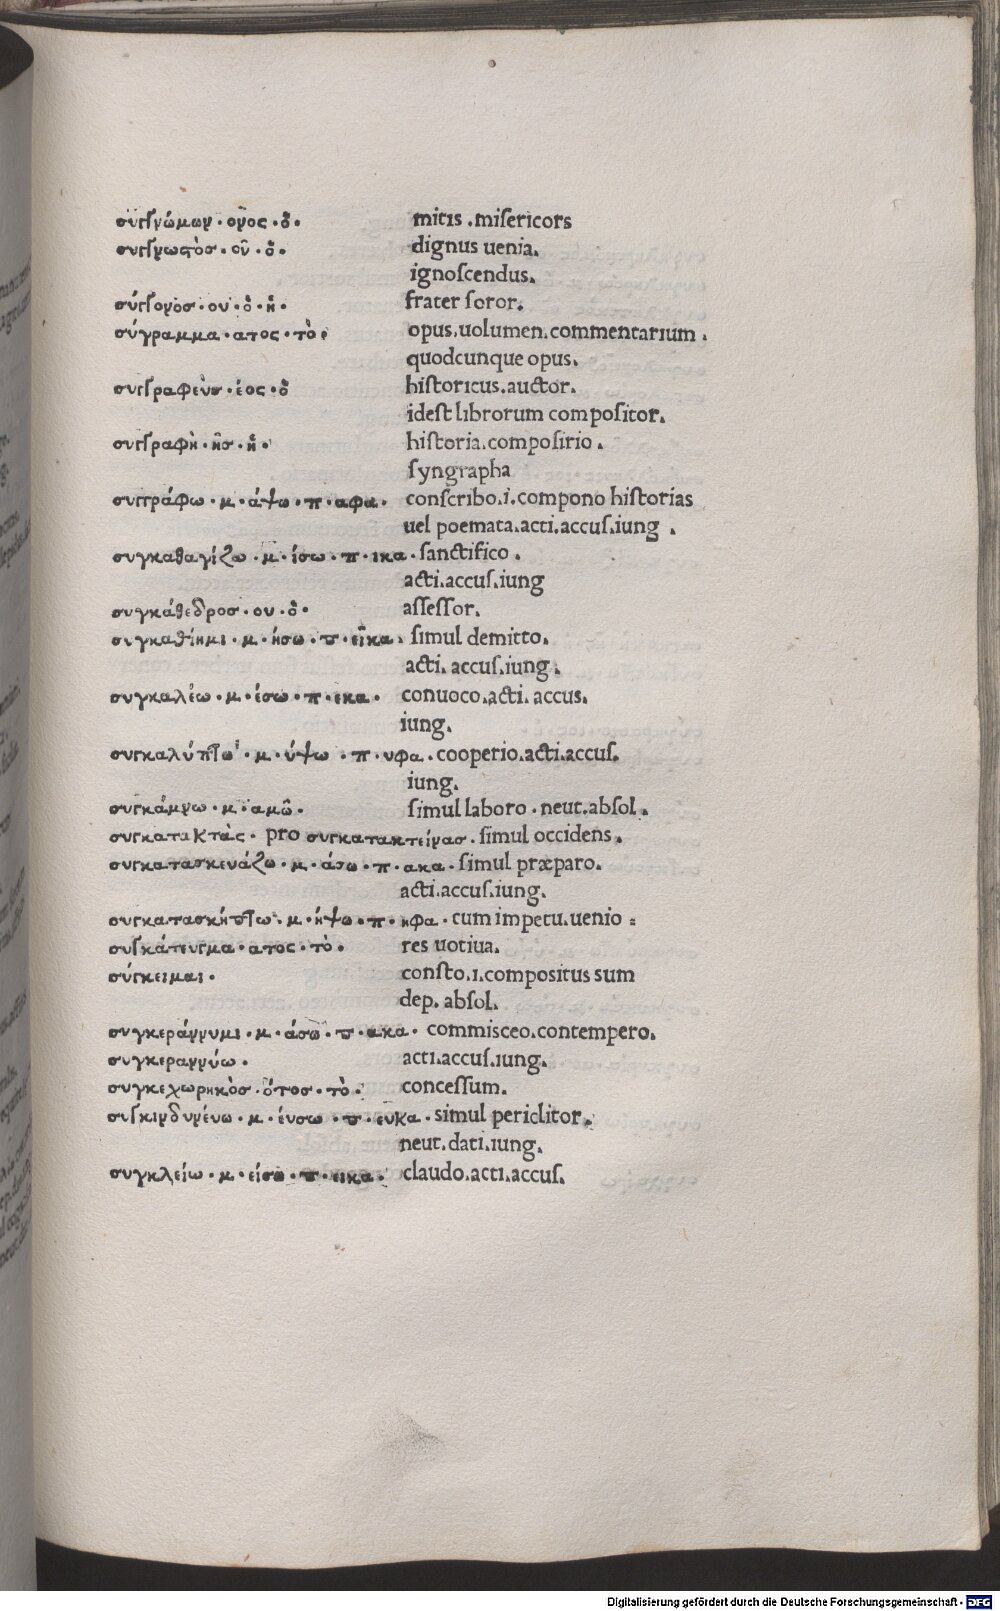 συγγνώμων·ονος·ὁ· mitis .misericors
συγγνωστὸσ·οῦ·ὁ· dignus uenia.
ignoscendus.
σύγγονοσ·ου·ὁ·ἡ· frater soror.
σύγραμμα·ατος·τὸ· opus.uolumen.commentarium .
quodcunque opus.
συγγραφεὺσ·έος·ὁ historicus.auctor.
idest librorum compositor.
συγγραφὴ·ῆσ·ἡ· historia.compositio .
syngrapha
συγγράφω·μ·άψω·π·αφα· conscribo.i.compono historias
uel poemata.acti.accus.iung .
συγκαθαγίζω·μ·ίσω·π·ικα· sanctifico .
acti.accus.iung
συγκάθεδροσ·ου·ὁ· assessor.
συγκαθίημι·μ·ήσω·π·εῖκα· simul demitto.
acti. accus.iung.
συγκαλέω·μ·έσω·π·εκα· conuoco.acti. accus.
iung.
συγκαλύπτω·μ·ύψω·π·υφα· cooperio.acti.accus.
iung.
συγκάμνω·μ·αμῶ· simul laboro . neut.absol .
συγκατακτὰς· pro συγκατακτείνασ· simul occidens .
συγκατασκευάζω·μ·άσω·π·ακα· simul præparo.
acti.accus.iung.
συγκατασκήπτω·μ·ήψω·π·ηφα· cum impetu.uenio :
συγκάτευγμα·ατος·τὸ· res uotiua.
σύγκειμαι· consto.i.compositus sum
dep. absol.
συγκεράννυμι·μ·άσω·π·ακα· commisceo.contempero.
συγκεραννύω· acti.accus.iung.
συγκεχωρηκὸσ·ότοσ·τὸ· concessum.
συγκινδυνένω·μ·ένσω·π·ευκα· simul periclitor.
neut.dati.iung.
συγκλείω·μ·είσω·π·εικα· claudo.acti.accus.
Digitalisierung gefördert durch die Deutsche Forschungsgemeinschaft - DFG